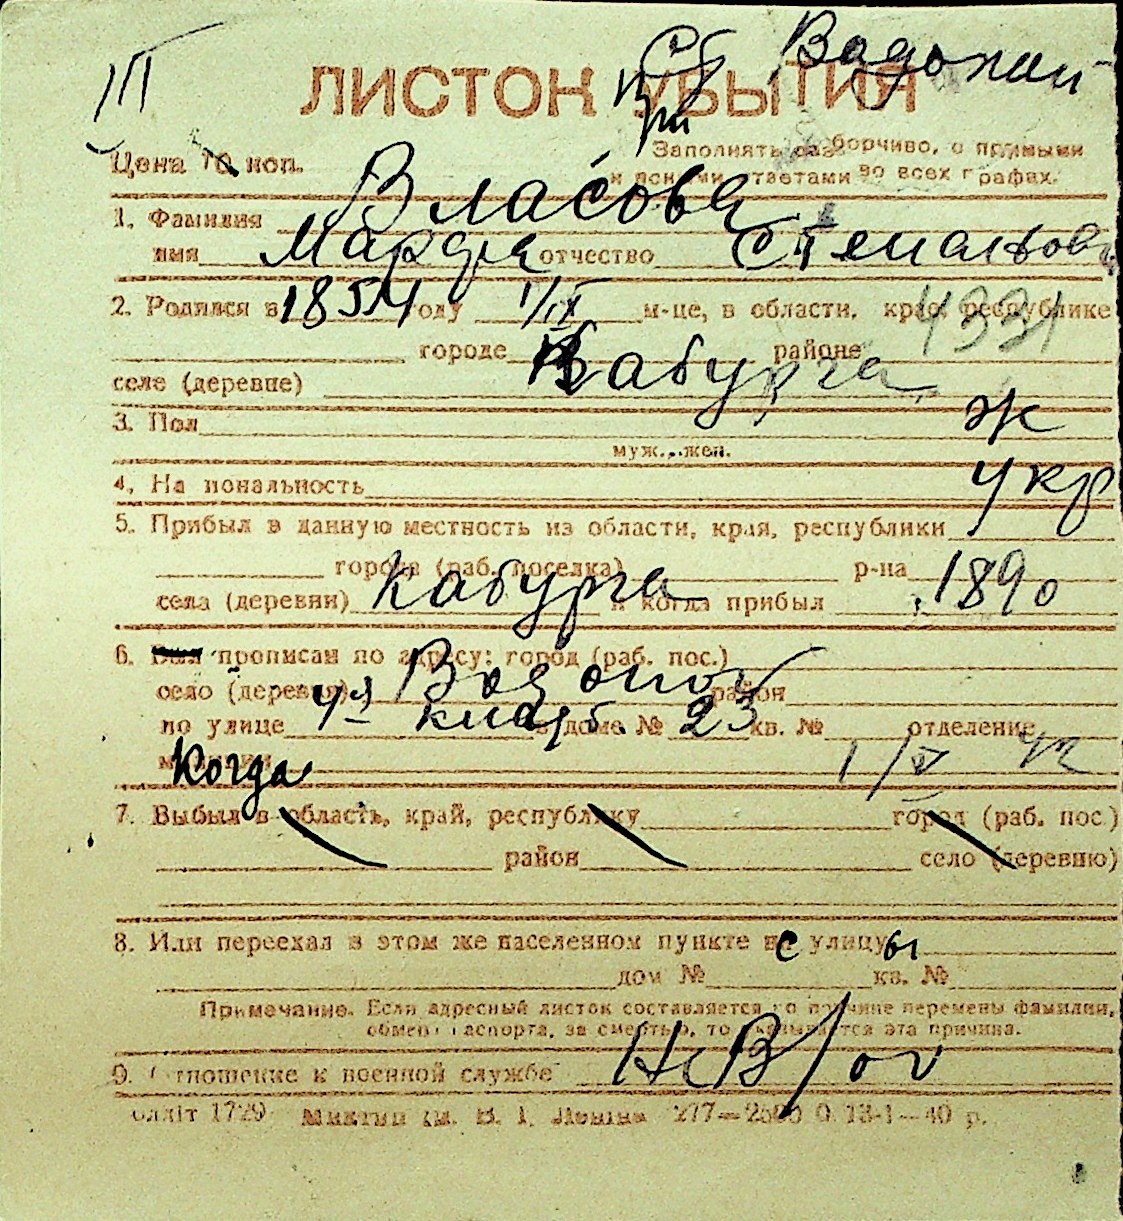 III
Водопой
ЛИСТОК УБЫТИЯ
при
Цена 10 коп.
Заполнять разборчиво, с прямыми
и ясными ответами во всех графах.
1. Фамилия Власова
имя Марфа отчество Степановна
2. Родился в 1854 году 1/IX м-це, в области, крае, республике
4331
городе районе
селе (деревне) Кабурга
3. Пол ж
муж...жен.
4. Национальность укр
5. Прибыл в данную местность из области, края, республики
города (раб. поселка) р-на
села (деревни) Кабурга и когда прибыл 1890
6. Был прописан по адресу: город (раб. пос.)
село (деревня) Водопой район
по улице 4я в доме № 23 кв. № отделение
милиции Когда 1/V 42
7. Выбыл в область, край, республику город (раб. пос)
район село (деревню)
8. Или переехал в этом же населенном пункте с улицы
дом № кв. №
Примечание. Если адресный листок составляется по причине перемены фамилии,
обмена паспорта, за смертью, то указывается эта причина.
9. Отношение к военной службе Н В/об
Миктип им. В. І. Леніна 277—2500 0. 13-1—40 р.